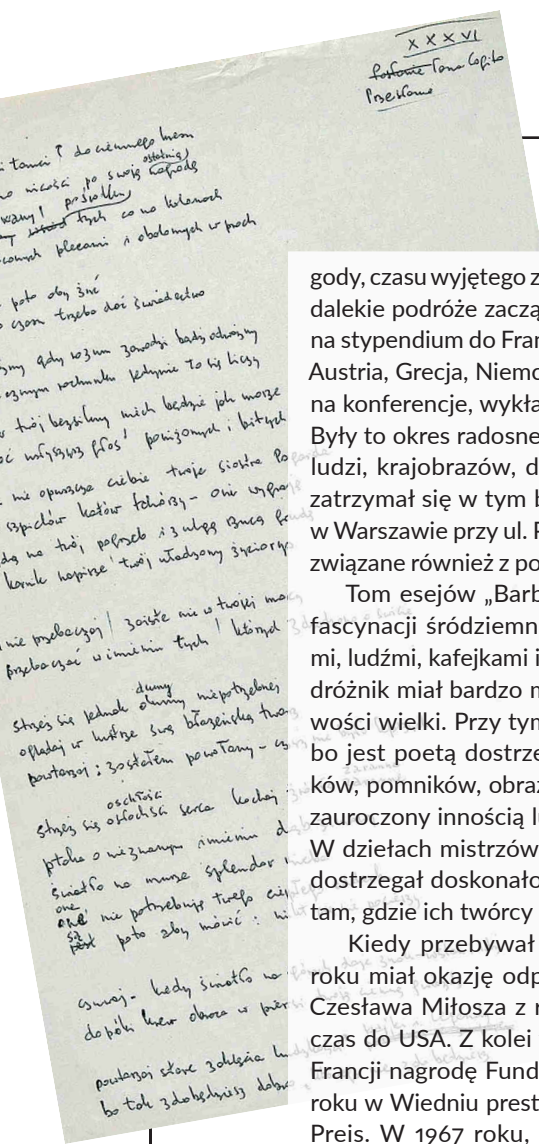 XXXVI
Posłanie Pana Cogito
Przesłanie
tamci do ciemnego kresu
nicości po swoją ostatnią nagrodę
pośród tych co na kolanach
plecami i obalonych w proch
po to aby żyć
czasu trzeba dać świadectwo
gdy rozum zawodzi bądź odważny
rachunku jedynie to się liczy
twój bezsilny niech będzie jak morze
usłyszysz głos poniżonych i bitych
nie opuszcza ciebie twoja siostra Pogarda
szpiclów katów tchórzy – oni wygrają
na twój pogrzeb i z ulgą rzucą grudę
kornik napisze twój uładzony życiorys
nie przebaczaj zaiste nie w twojej mocy
przebaczać w imieniu tych których
strzeż się jednak dumy niepotrzebnej
oglądaj w lustrze swą błazeńską twarz
powtarzaj: zostałem powołany –
strzeż się oschłości serca kochaj
ptaka o nieznanym imieniu
światło na murze splendor nieba
one nie potrzebują twego ciepłego
są po to aby mówić:
czuwaj – kiedy światło na
dopóki krew obraca w piersi
powtarzaj stare zaklęcia
bo tak zdobędziesz dobro
gody, czasu wyjętego z
dalekie podróże zaczą
na stypendium do Fran
Austria, Grecja, Niemc
na konferencje, wykła
Były to okres radosne
ludzi, krajobrazów, d
zatrzymał się w tym b
w Warszawie przy ul. P
związane również z po
Tom esejów „Barb
fascynacji śródziemn
mi, ludźmi, kafejkami i
dróżnik miał bardzo m
wości wielki. Przy tym
bo jest poetą dostrze
ków, pomników, obraz
zauroczony innością lu
W dziełach mistrzów
dostrzegał doskonało
tam, gdzie ich twórcy
Kiedy przebywał
roku miał okazję odp
Czesława Miłosza z r
czas do USA. Z kolei
Francji nagrodę Fund
roku w Wiedniu prest
Preis. W 1967 roku,